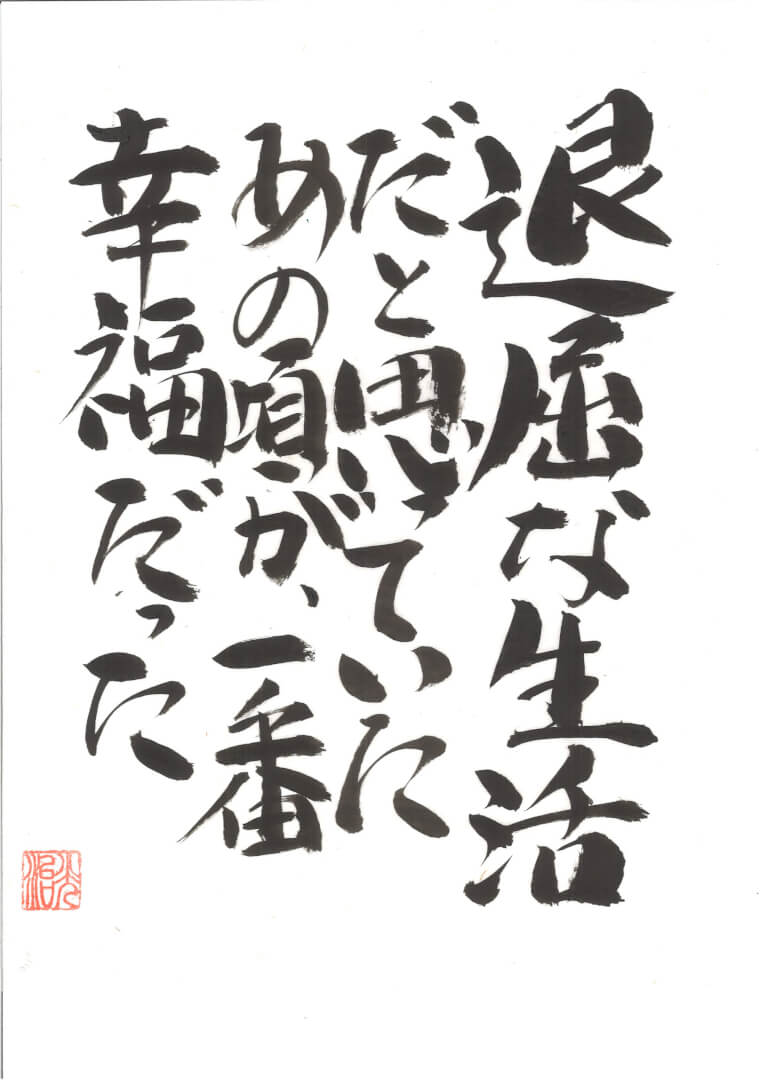 退屈な生活
だと思っていた
あの頃が、一番
幸福だった